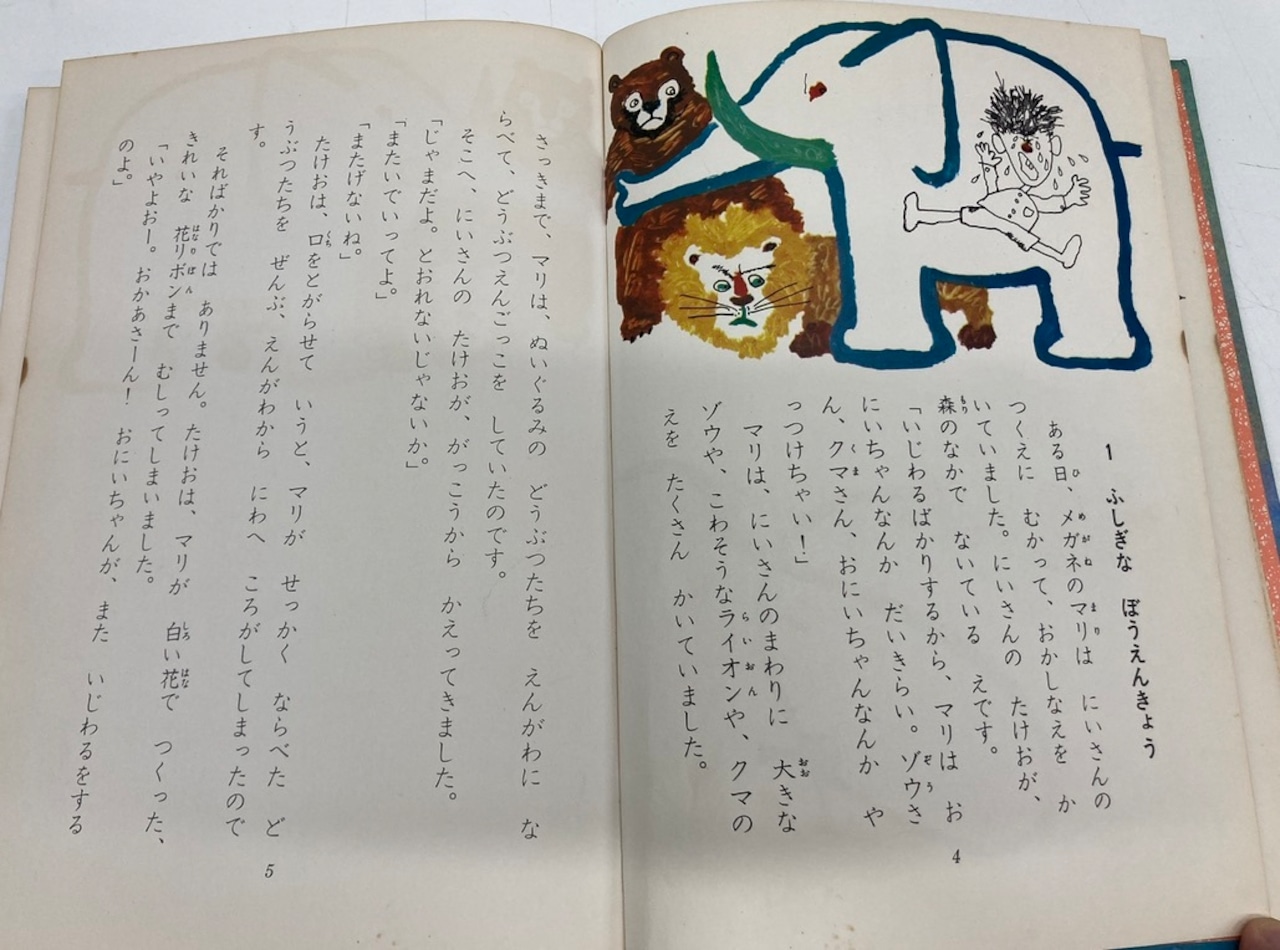 1 ふしぎな ぼうえんきょう
ある日、メガネのマリは にいさんの
つくえに むかって、おかしなえを か
いていました。にいさんの たけおが、
森のなかで ないている えです。
「いじわるばかりするから、マリは お
にいちゃんなんか だいきらい。ゾウさ
ん、クマさん、おにいちゃんなんか や
っつけちゃい!」
マリは、にいさんのまわりに 大きな
ゾウや、こわそうなライオンや、クマの
えを たくさん かいていました。
4
さっきまで、マリは、ぬいぐるみの どうぶつたちを えんがわに な
らべて、どうぶつえんごっこを していたのです。
そこへ、にいさんの たけおが、がっこうから かえってきました。
「じゃまだよ。とおれないじゃないか。」
「またいでいってよ。」
「またげないね。」
たけおは、口をとがらせて いうと、マリが せっかく ならべた ど
うぶつたちを ぜんぶ、えんがわから にわへ ころがしてしまったので
す。
そればかりでは ありません。たけおは、マリが 白い花で つくった、
きれいな 花リボンまで むしってしまいました。
「いやよおー。おかあさーん! おにいちゃんが、また いじわるをする
のよ。」
5